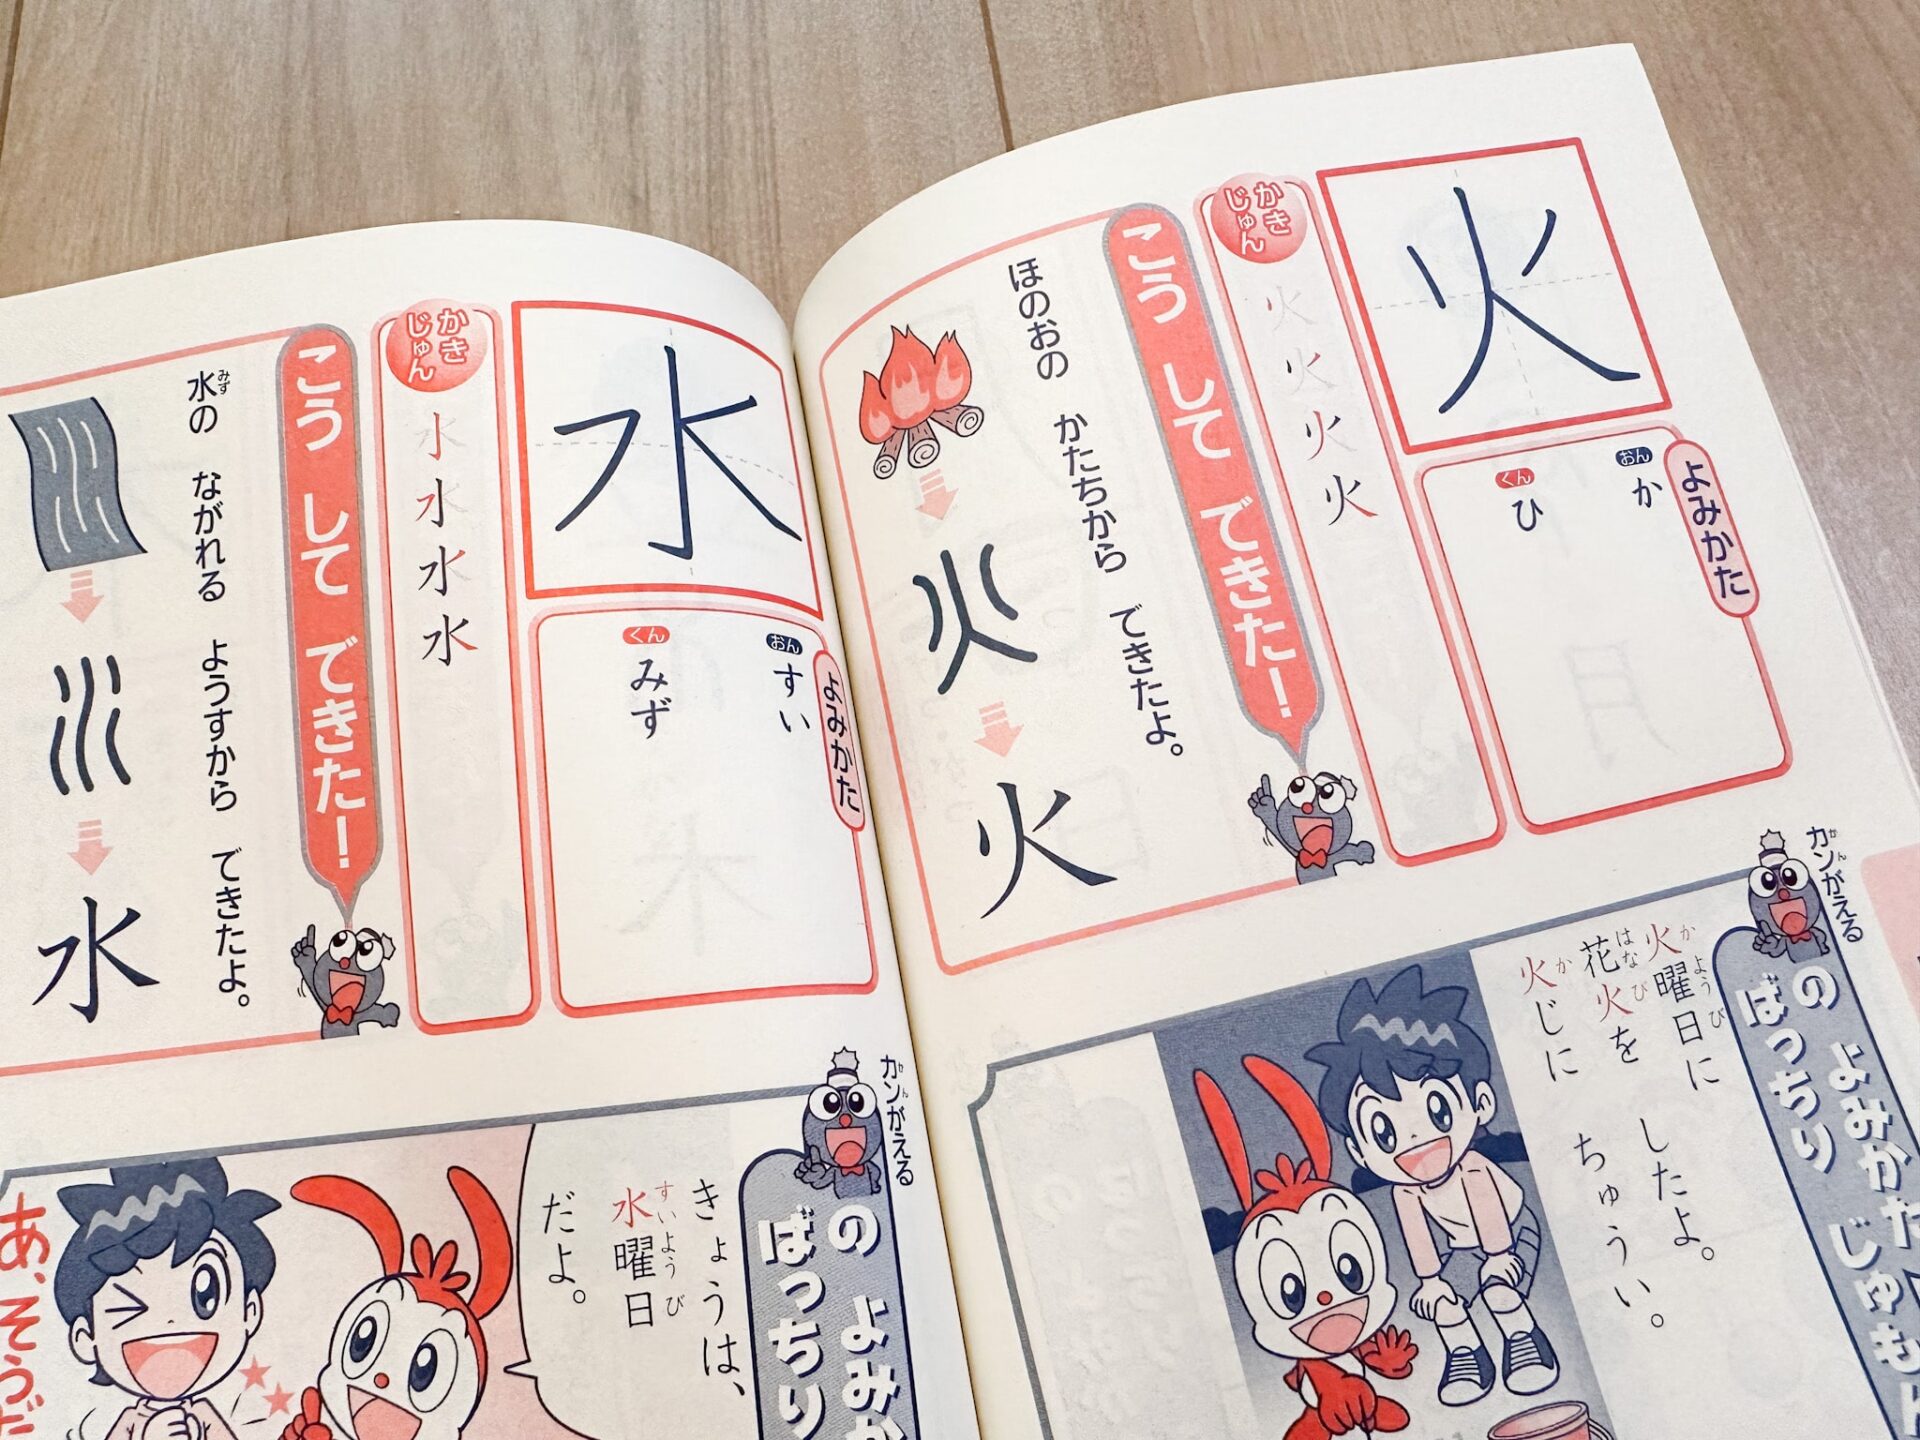 火
よみかた
おん
か
くん
ひ
かきじゅん
火
火
火
火
こう して できた!
ほのおの かたちから できたよ。
火
カンがえる
かん
の よみかた
ばっちり じゅもん
火曜日に
か ようび
花火を したよ。
はなび
火じに ちゅうい。
か
水
よみかた
おん
すい
くん
みず
かきじゅん
水
水
水
水
こう して できた!
水の ながれる ようすから できたよ。
みず
水
カンがえる
かん
の よみか
ばっちり
きょうは、
水曜日
すいようび
だよ。
あ、そうだ